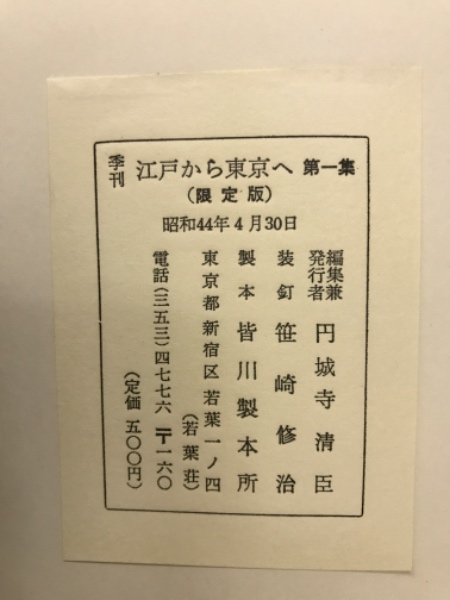 季刊 江戸から東京へ 第一集
（限定版）
昭和44年4月30日
編集兼発行者 円城寺清臣
装釘 笹崎修治
製本 皆川製本所
東京都新宿区若葉一ノ四
（若葉荘）
電話（三五三）四七七六 〒一六〇
（定価 五〇〇円）